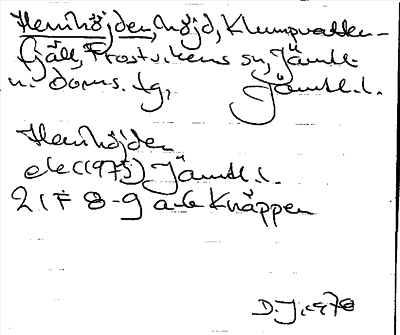 Hemhöjden, höjd, Klumpvatten-
fjäll, Frostvikens sn, Jämtl.
n. doms. tg, Jämtl.l.
Hemhöjden
ek (1975) Jämtl.l.
21F 8-9 a-b Knäppen
D.J. 1978